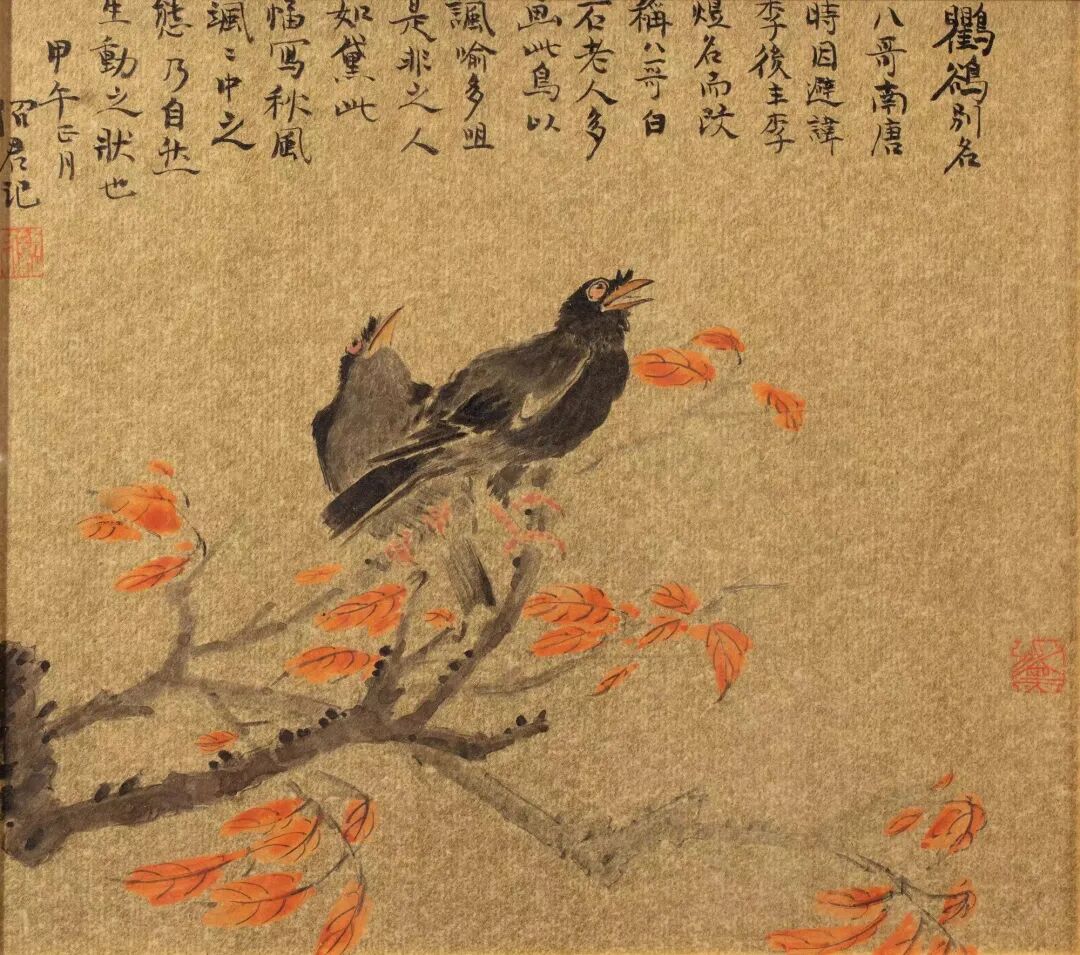 鸜鵒别名
八哥南唐
時因避諱
李後主李
煜名而改
稱八哥白
石老人多
画此鳥以
諷喻多咀
是非之人
如黛此
幅寫秋風
颯〻中之
態乃自然
生動之狀也
甲午正月
君记